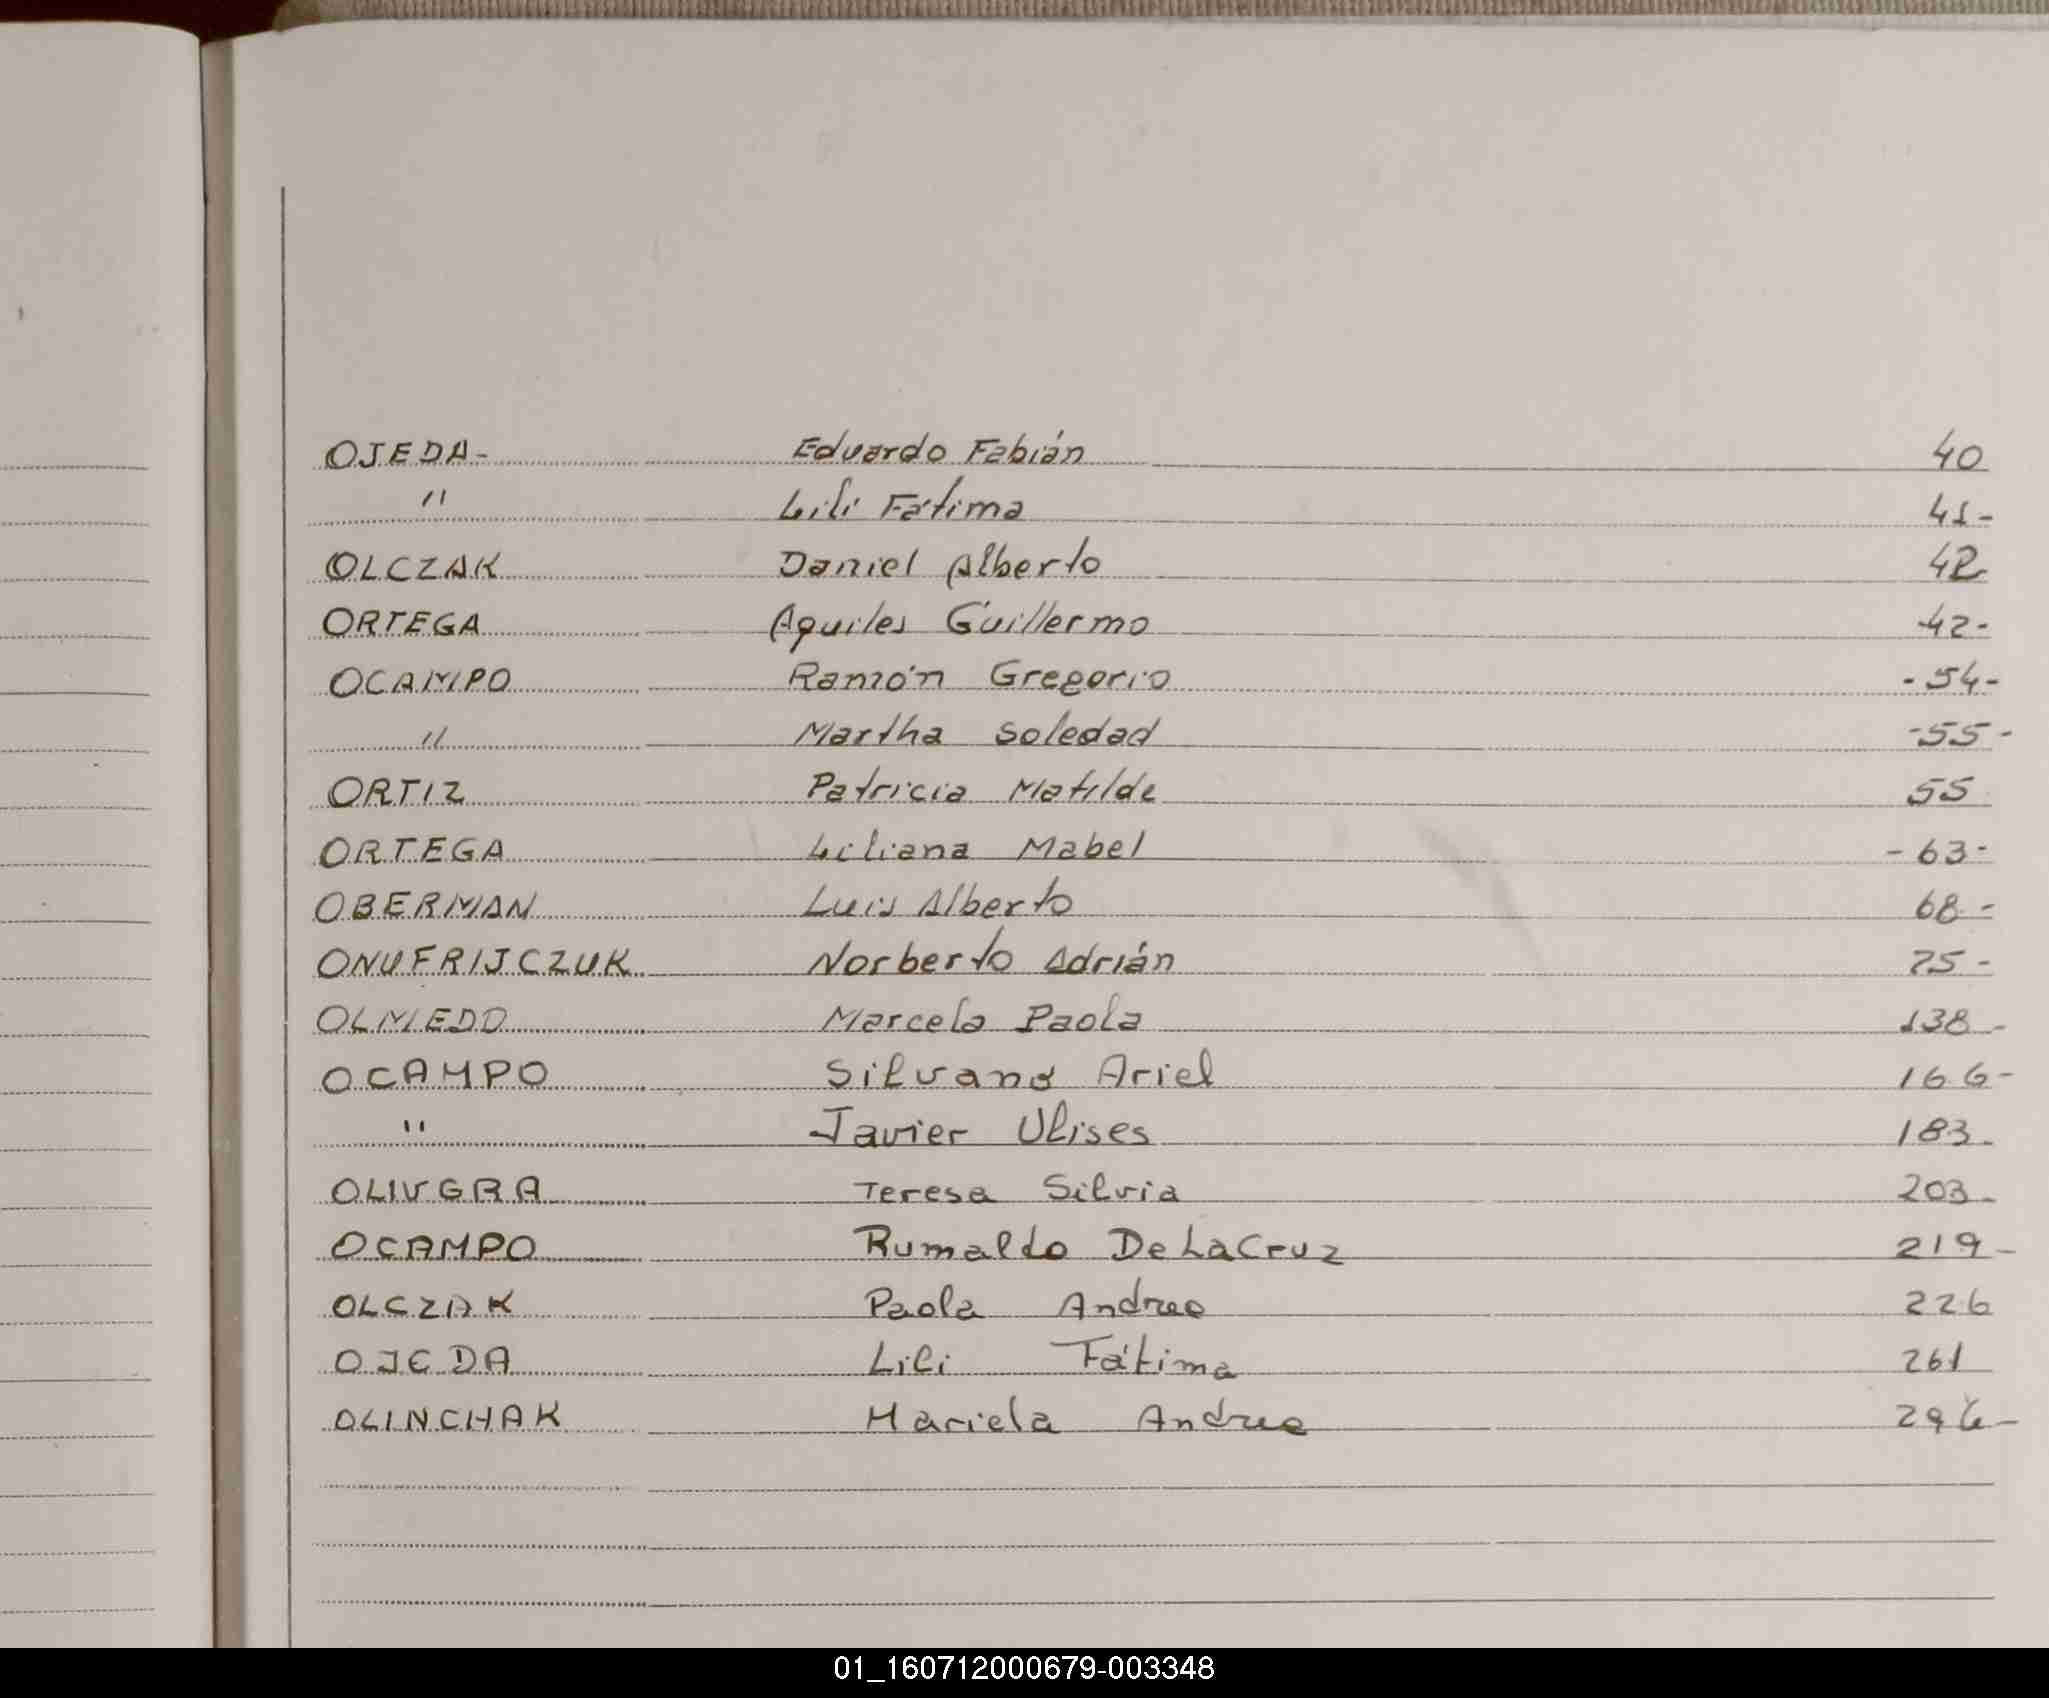 OJEDA- Eduardo Fabián 40
" Lili Fátima 41-
OLCZAK Daniel Alberto 42
ORTEGA Aquiles Guillermo -42-
OCAMPO Ramón Gregorio -54-
" Martha Soledad -55-
ORTIZ Patricia Matilde 55
ORTEGA Liliana Mabel -63-
OBERMAN Luis Alberto 68-
ONUFRIJCZUK Norberto Adrián 75-
OLMEDO Marcela Paola 138-
OCAMPO Silvano Ariel 166-
" Javier Ulises 183-
OLIVERA Teresa Silvia 203-
OCAMPO Rumaldo De La Cruz 219-
OLCZAK Paola Andrea 226
OJEDA Lili Fátima 261
OLINCHAK Mariela Andrea
01_160712000679-003348